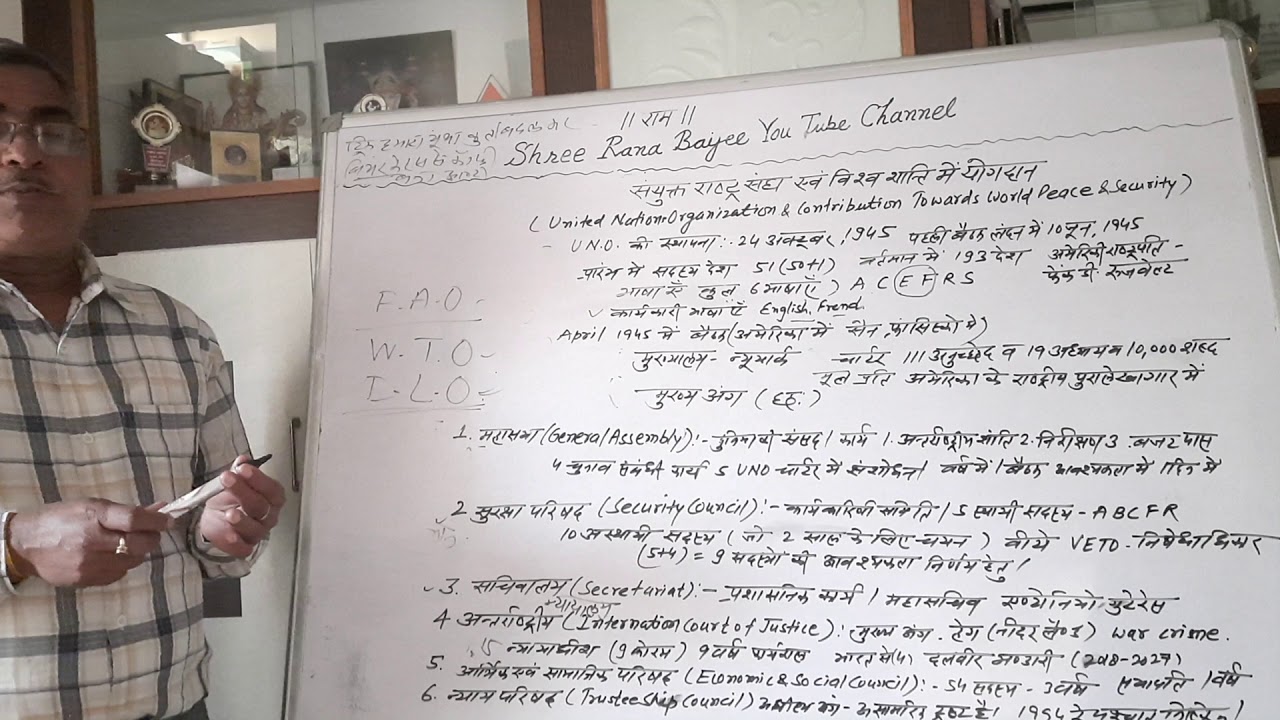 || राम ||
Shree Rana Baijee You Tube Channel
संयुक्त राष्ट्र संघ एवं विश्व शांति में योगदान
(United Nation Organization & Contribution Towards World Peace & Security)
- U.N.O. की स्थापना:- 24 अक्टूबर, 1945 पहली बैठक लंदन में 10 जून, 1945
प्रारंभ में सदस्य देश 51 (50+1) वर्तमान में 193 देश अमेरिकी राष्ट्रपति -
भाषाएँ कुल 6 भाषाएँ) A C E F R S फ्रेंकडी रूजवेल्ट
कार्यकारी भाषाएँ English, Frend.
April 1945 में बैठक (अमेरिका में सेन फ्रांसिस्को में)
मुख्यालय - न्यूयार्क चार्टर 111 अनुच्छेद व 19 अध्याय व 10,000 शब्द
मूल प्रति अमेरिका के राष्ट्रीय पुरालेखागार में
मुख्य अंग (छह.)
F.A.O -
W.T.O -
I.L.O -
1. महासभा (General Assembly):- दुनिया की संसद / कार्य 1. अन्तर्राष्ट्रीय शांति 2. निरीक्षण 3. बजट पास
4 चुनाव संबंधी कार्य 5 UNO चार्टर में संशोधन / वर्ष में 1 बैठक आवश्यकता में 1 दिन में
2 सुरक्षा परिषद (Security Council):- कार्यकारिणी समिति / 5 स्थायी सदस्य - A B C F R
10 अस्थायी सदस्य (जो 2 साल के लिए चयन) वीटो VETO - निषेधाधिकार
(5+4) = 9 सदस्यों की आवश्यकता निर्णय हेतु /
3. सचिवालय (Secretariat):- प्रशासनिक कार्य / महासचिव एण्टोनियो गुटेरेस
4 अन्तर्राष्ट्रीय न्यायालय (Internation Court of Justice): मुख्य अंग. हेग (नीदरलैण्ड) war crime.
15 न्यायाधीश (9 कोरम) 9 वर्ष कार्यकाल भारत से (4) दलवीर भण्डारी (2018-2027)
5. आर्थिक एवं सामाजिक परिषद (Economic & Social Council):- 54 सदस्य - 3 वर्ष सभापति 1 वर्ष
6. न्याय परिषद (Trusteeship Council)